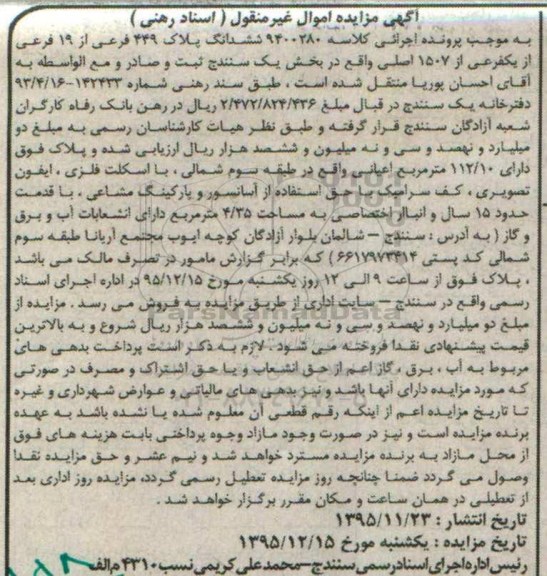 آگهی مزایده اموال غیرمنقول ( اسناد رهنی )
به موجب پرونده اجرائی کلاسه ۹۴۰۰۲۸۰ ششدانگ پلاک ۴۴۹ فرعی از ۱۹ فرعی
از یکفرعی از ۱۵۰۷ اصلی واقع در بخش یک سنندج ثبت و صادر و مع الواسطه به
آقای احسان پوریا منتقل شده است ، طبق سند رهنی شماره ۱۴۲۴۳۳-۹۳/۴/۱۶
دفترخانه یک سنندج در قبال مبلغ ۲/۴۷۲/۸۲۴/۴۳۶ ریال در رهن بانک رفاه کارگران
شعبه آزادگان سنندج قرار گرفته و طبق نظر هیات کارشناسان رسمی به مبلغ دو
میلیارد و نهصد و سی و نه میلیون و ششصد هزار ریال ارزیابی شده و پلاک فوق
دارای ۱۱۲/۱۰ مترمربع اعیانی واقع در طبقه سوم شمالی ، با اسکلت فلزی ، ایفون
تصویری ، کف سرامیک با حق استفاده از آسانسور و پارکینگ مشاعی ، با قدمت
حدود ۱۵ سال و انبار اختصاصی به مساحت ۴/۳۵ مترمربع دارای انشعابات آب و برق
و گاز ( به آدرس : سنندج – شالمان بلوار آزادگان کوچه ایوب مجتمع آریانا طبقه سوم
شمالی کد پستی ۶۶۱۷۹۷۳۴۱۴ ) که برابر گزارش مامور در تصرف مالک می باشد
، پلاک فوق از ساعت ۹ الی ۱۲ روز یکشنبه مورخ ۹۵/۱۲/۱۵ در اداره اجرای اسناد
رسمی واقع در سنندج – سایت اداری از طریق مزایده به فروش می رسد . مزایده از
مبلغ دو میلیارد و نهصد و سی و نه میلیون و ششصد هزار ریال شروع و به بالاترین
قیمت پیشنهادی نقدا فروخته می شود . لازم به ذکر است پرداخت بدهی های
مربوط به آب ، برق ، گاز اعم از حق انشعاب و یا حق اشتراک و مصرف در صورتی
که مورد مزایده دارای آنها باشد و نیز بدهی های مالیاتی و عوارض شهرداری و غیره
تا تاریخ مزایده اعم از اینکه رقم قطعی آن معلوم شده یا نشده باشد به عهده
برنده مزایده است و نیز در صورت وجود مازاد وجوه پرداختی بابت هزینه های فوق
از محل مازاد به برنده مزایده مسترد خواهد شد و نیم عشر و حق مزایده نقدا
وصول می گردد ضمنا چنانچه روز مزایده تعطیل رسمی گردد، مزایده روز اداری بعد
از تعطیلی در همان ساعت و مکان مقرر برگزار خواهد شد .
تاریخ انتشار : ۱۳۹۵/۱۱/۲۳
تاریخ مزایده : یکشنبه مورخ ۱۳۹۵/۱۲/۱۵
رئیس اداره اجرای اسناد رسمی سنندج – محمدعلی کریمی نسب ۴۳۱۰ م الف
ParsNamadData